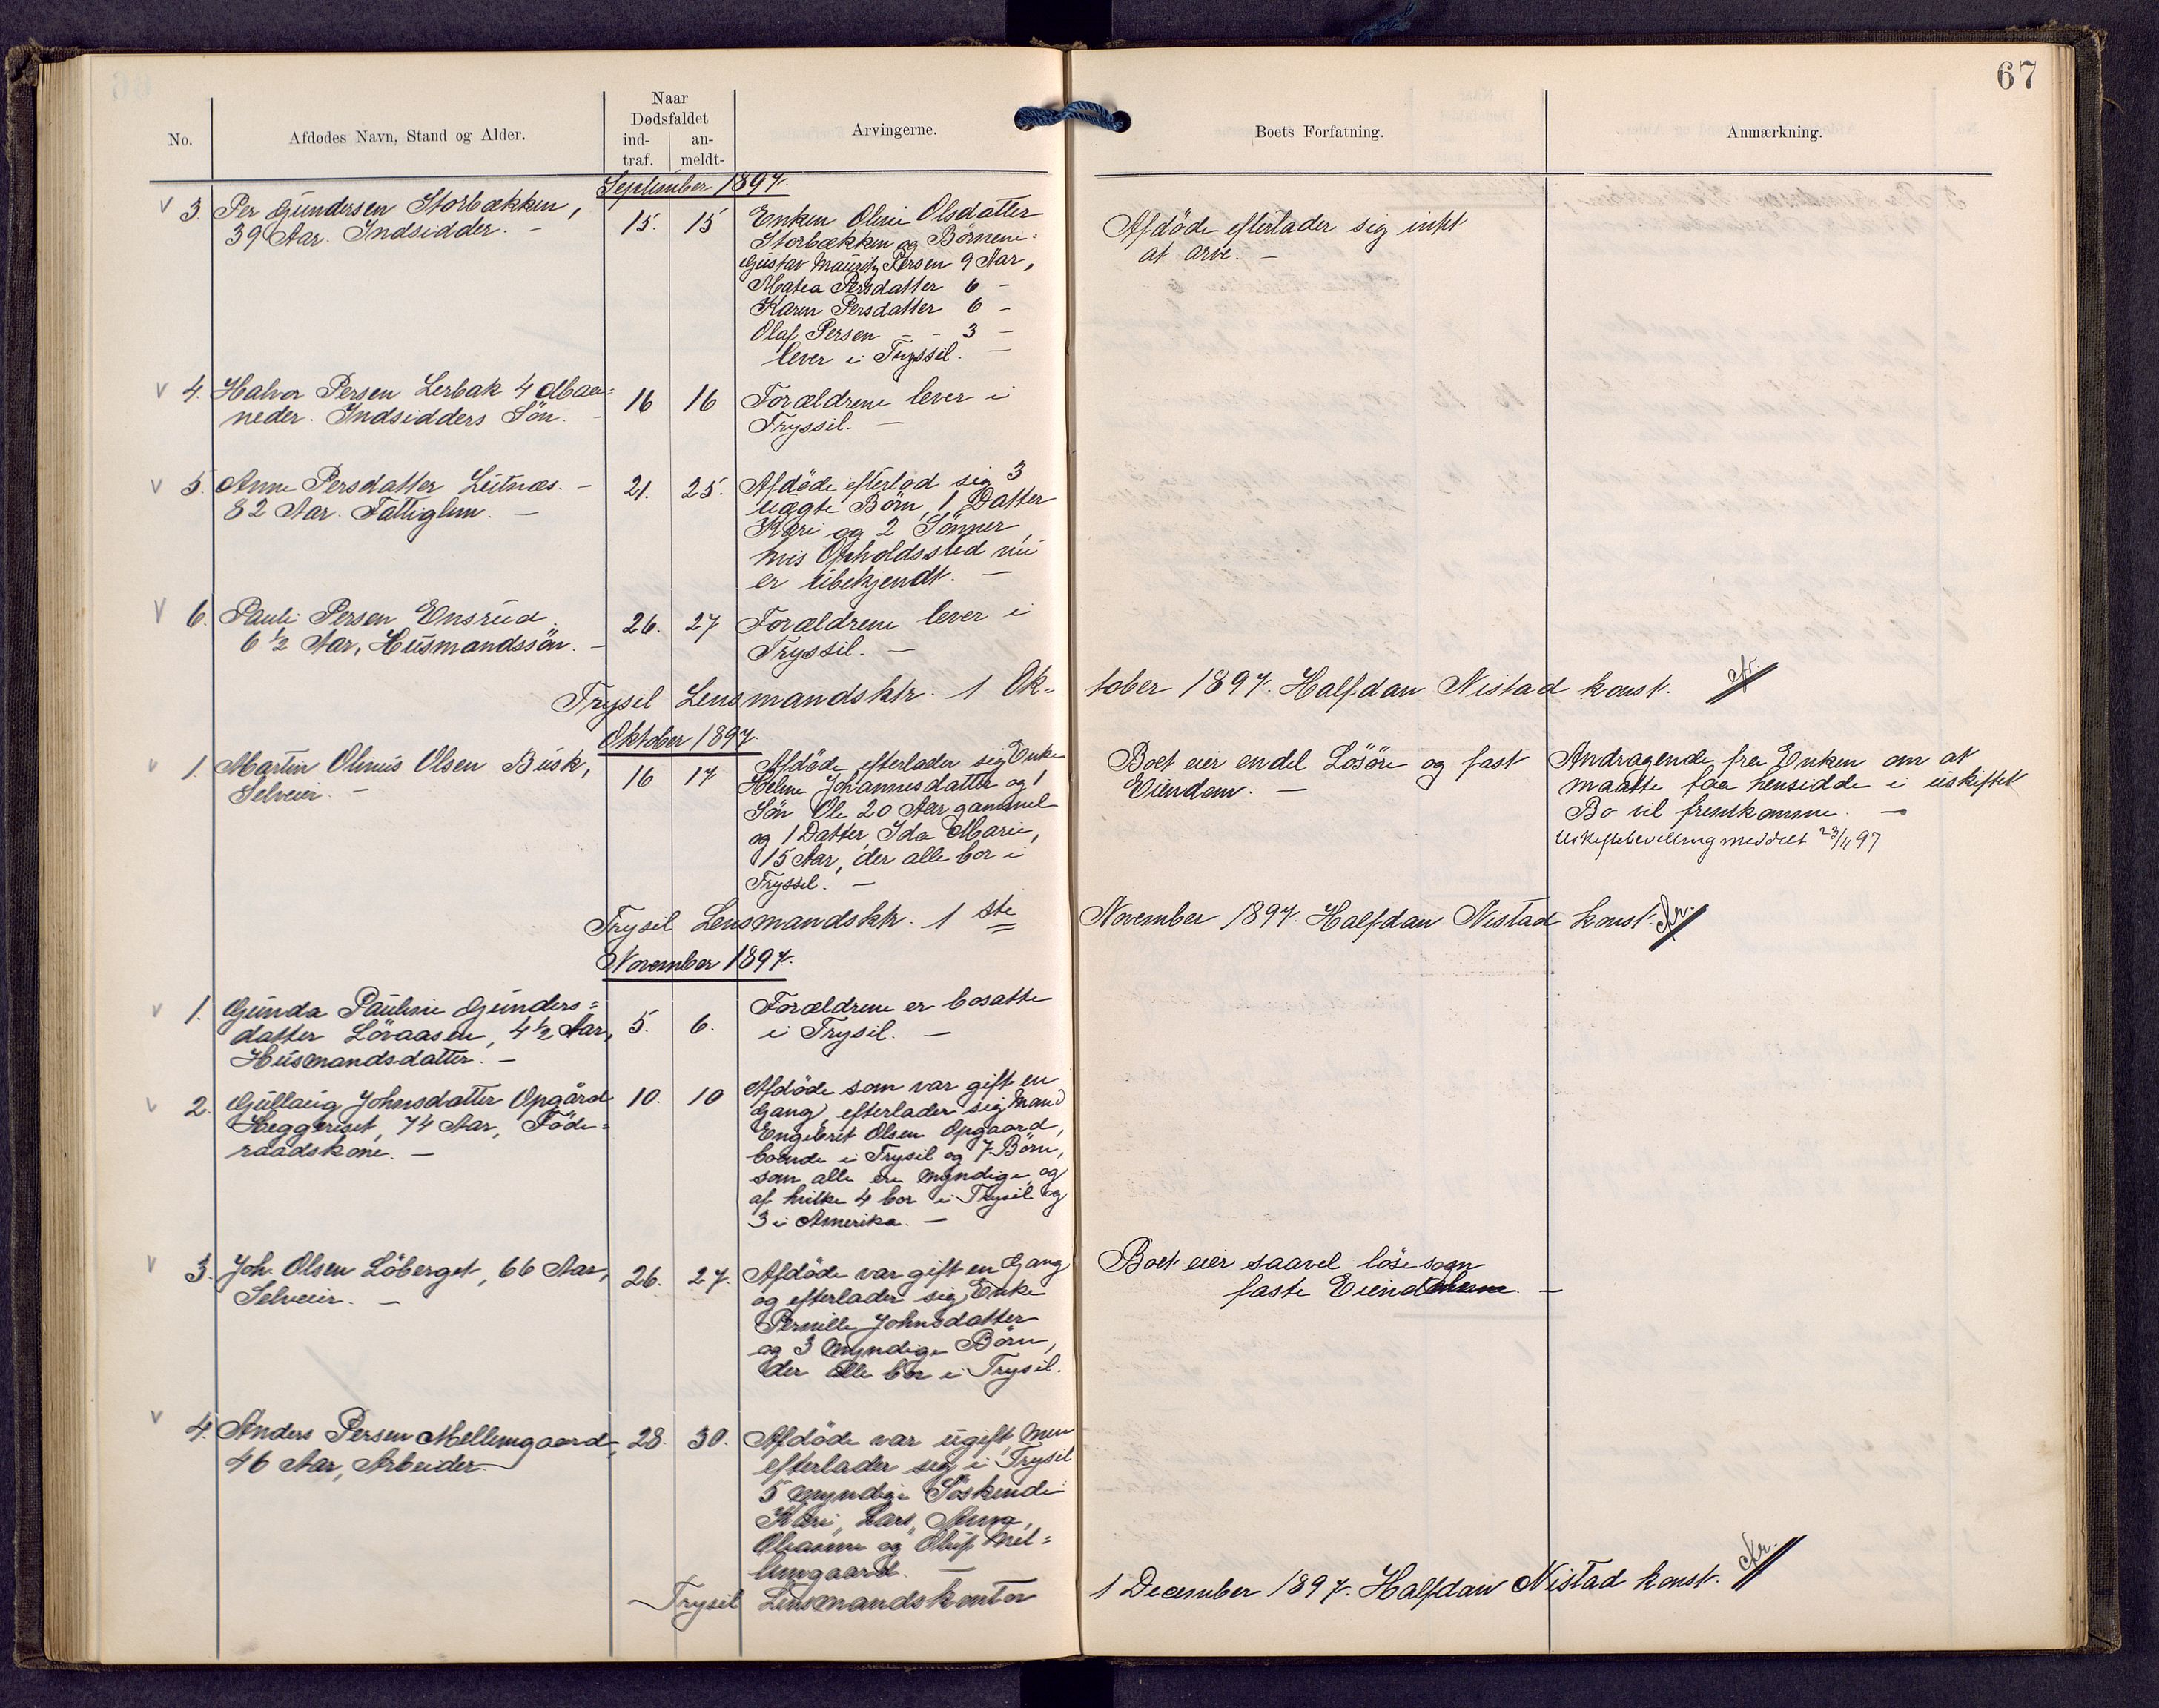 67
No.
Afdødes Navn, Stand og Alder.
Naar
Dødsfaldet
ind-
traf.
an-
meldt-
Arvingerne.
Boets Forfatning.
Anmærkning.
September 1897.
3. Per Gundersen Storbækken,
39 Aar. Indsidder. —
15. 15
Enken Oline Olsdatter
Storbækken og Börnene:
Gustav Mauritz Persen 9 Aar,
Mathea Persdatter 6 —
Karen Persdatter 6 —
Olaf Persen — — 3 —
lever i Tryssil. —
Afdöde efterlader sig intet
at arve. —
4. Halvor Persen Lerbak 4 Maa=
neder. Indsidders Sön. —
16 16
Forældrene lever i
Tryssil. —
5. Anne Persdatter Lutnæs. —
82 Aar. Fattiglem. —
21. 25.
Afdöde efterlod sig 3
uægte Börn, 1 Datter
Kari og 2 Sönner,
hvis Opholdssted nu
er ubekjendt. —
6. Pauli Persen Ensrud.
6 1/2 Aar, Husmandssön. —
26. 27
Forældrene lever i
Tryssil. —
Trysil Lensmandsktr. 1 Ok-
tober 1897. Halfdan Nistad konst.
Oktober 1897.
1. Martin Olinus Olsen Busk,
Selveier. —
16 17
Afdöde efterlader sig Enke
Helene Johannesdatter og 1
Sön Ole 20 Aar gammel
og 1 Datter, Ida Marie,
15 Aar, der alle bor i
Tryssil. —
Boet eier endel Lösöre og fast
Eiendom. —
Andragende fra Enken om at
maatte faa hensidde i uskiftet
Bo vil fremkomme. —
Uskiftebevilling meddelt 23/11 97
Trysil Lensmandsktr. 1 ste
November 1897. Halfdan Nistad konst.
November 1897.
1. Gunda Pauline Gunders=
datter Lövaasen, 4 1/2 Aar,
Husmandsdatter. —
5. 6.
Forældrene er bosatte
i Trysil. —
2. Gullaug Johnsdatter Opgård
Heggeriset, 74 Aar, Föde=
raadskone. —
10. 10
Afdöde som var gift en
Gang, efterlader sig Mand
Engebret Olsen Opgaard,
boende i Trysil og 7 Börn,
som alle ere myndige og
af hvilke 4 bor i Trysil og
3 i Amerika. —
3. Joh. Olsen Löberget, 66 Aar,
Selveier. —
26. 27.
Afdöde var gift en Gang
og efterlader sig Enke
Pernille Johnsdatter
og 3 myndige Börn,
der alle bor i Trysil.
Boet eier saavel löse som
faste Eiendomme. —
4. Anders Persen Mellemgaard,
46 Aar, Arbeider
28. 30.
Afdöde var ugift, men
efterlader sig i Trysil
5 myndige Söskende
Kari, Lars,
Oleanne og Oluf Mel=
lemgaard. —
Trysil Lensmandskontor
1 December 1897. Halfdan Nistad konst.